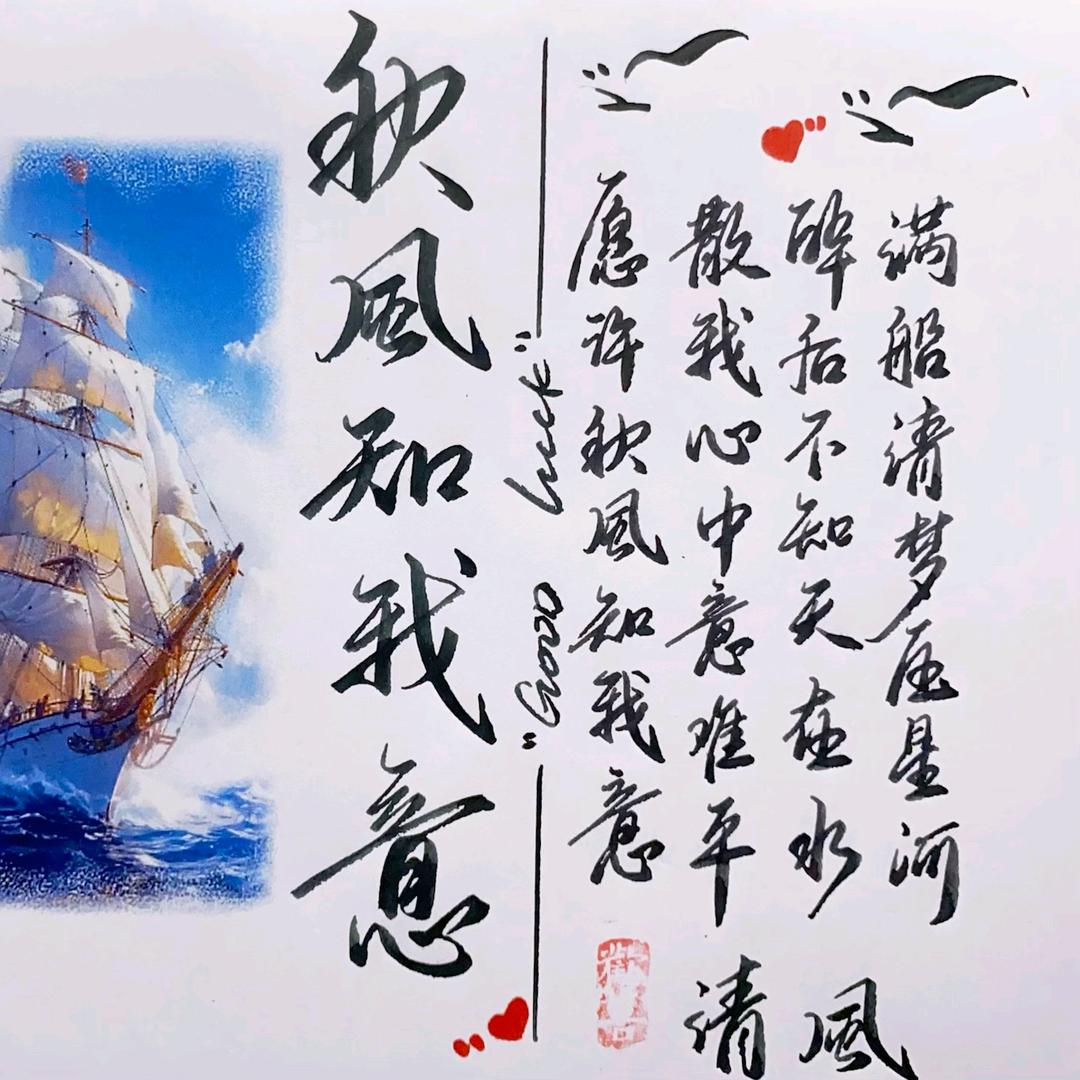 秋風知我意
"Good luck"
愿许秋風知我意
散我心中意难平
醉后不知天在水
满船清梦压星河
清風